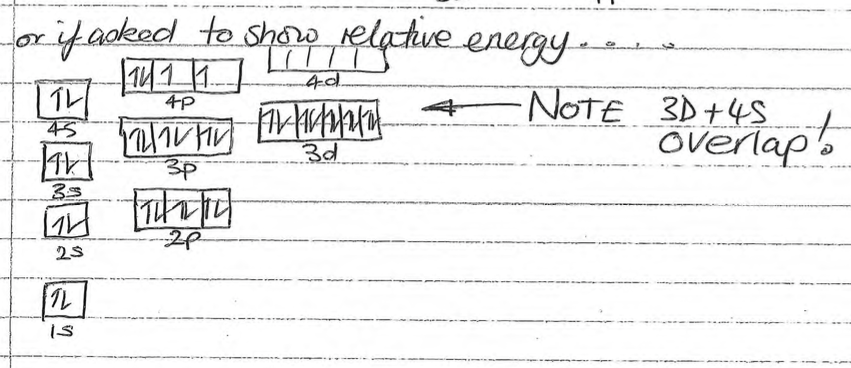 or if asked to show relative energy....
4d
4p
4s
NOTE 3D+4S
overlap!
3p
3d
3s
2p
2s
1s